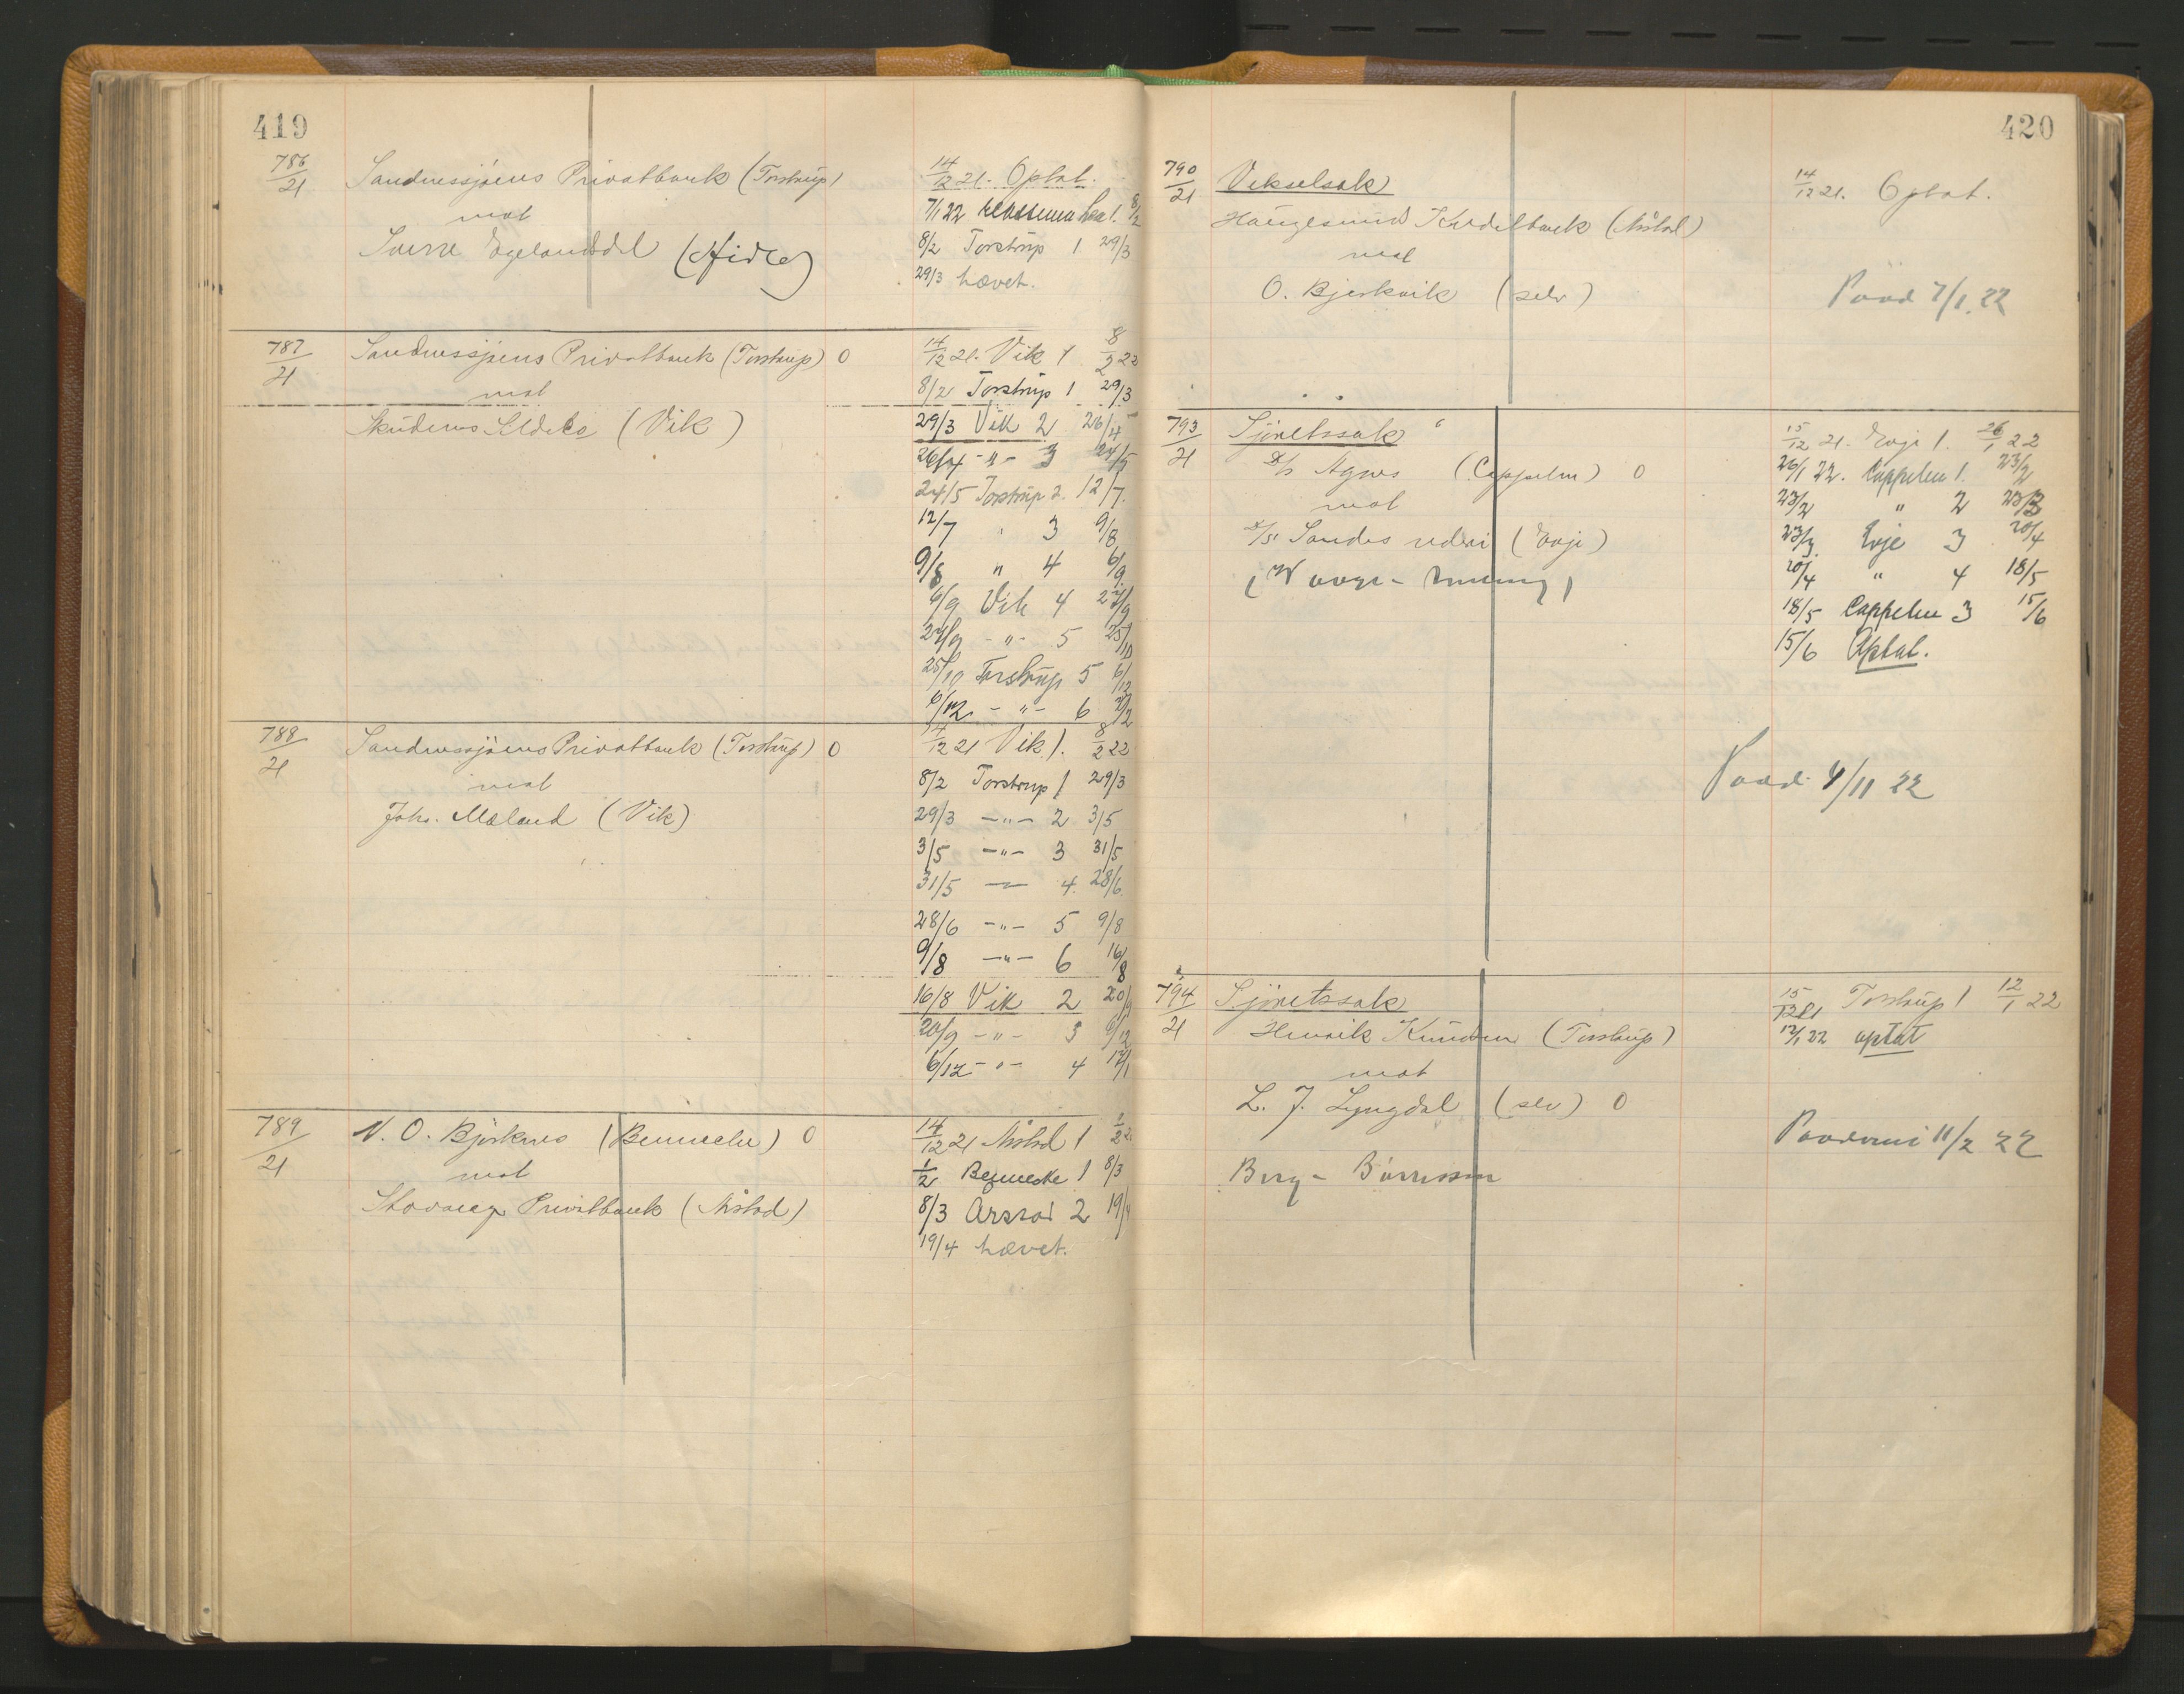 419
786/21 Sandnessjøens Privatbank (Torstrup) 14/12 21. Optat.
mot 7/1 22 1. 8/2
Egelandsdal 8/2 Torstrup 1 29/3
29/3 hævet.
787/21 Sandnessjøens Privatbank (Torstrup) 0 14/12 21. Vik 1 8/2 22
mot 8/2 Torstrup 1 29/3
(Vik) 29/3 Vik 2 26/4
26/4 -"- 3 24/5
24/5 Torstrup 2. 12/7.
12/7 " 3 9/8
9/8 " 4 6/9.
6/9 Vik 4 27/9
27/9 -"- 5 25/10
25/10 Torstrup 5 6/12
6/12 -"- 6
788/21 Sandnessjøens Privatbank (Torstrup) 0 14/12 21 Vik 1. 8/2 22
mot 8/2 Torstrup 1 29/3
Johs. Mæland (Vik) 29/3 -"- 2 3/5
3/5 -"- 3 31/5
31/5 -"- 4. 28/6
28/6 -"- 5 9/8
9/8 -"- 6 16/8
16/8 Vik 2 20/9
20/9 -"- 3 6/12
6/12 -"- 4 17/1
789/21 N. O. Bjørknes (Benneche) 0 14/12 21 Årstad 1 1/2 22
mot 1/2 Benneche 1 8/3
Stavanger Privatbank (Årstad) 8/3 Årstad 2 19/4
19/4 hævet.
420
790/21 Vekselsak 14/12 21. Optat.
Haugesunds Kreditbank (Årstad)
mot
O. Bjerkvik (selv) Paad 7/1. 22
793/21 Sjøretssak 15/12 21. Evje 1. 26/1 22
D/S Agnes (Cappelen) 0 26/1 22. Cappelen 1. 23/2
mot 23/2 " 2 23/3
A/S Sandes rederi (Evje) 23/3 Evje 3 20/4
20/4 " 4 18/5
18/5 Cappelen 3 15/6
15/6 Optat.
Paad. 4/11 22
794/21 Sjøretssak 15/12 21 Torstrup 1 12/1 22
Henrik Knudsen (Torstrup) 12/1 22 optat
mot
L. J. Lyngdal (selv) 0
11/2 22
Berg -